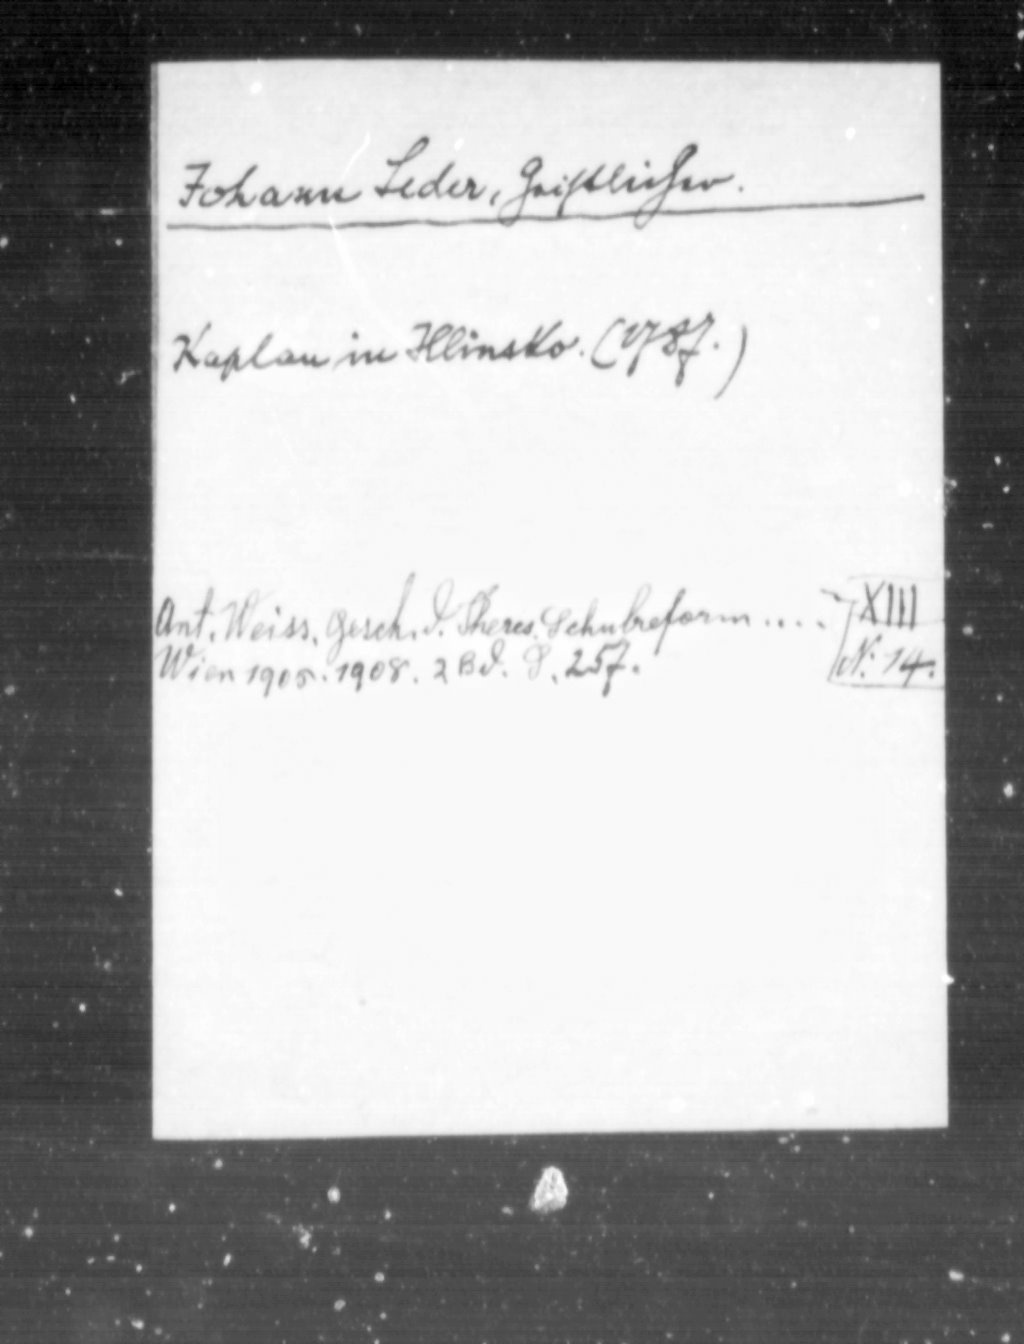 Johann Leder, Geistlicher.
Kaplan in Hlinsko. (1787.)
Ant. Weiss. Gesch. d. Theres. Schulreform ....
Wien 1905. 1908. 2 Bd. S. 257.
XIII
N. 14.